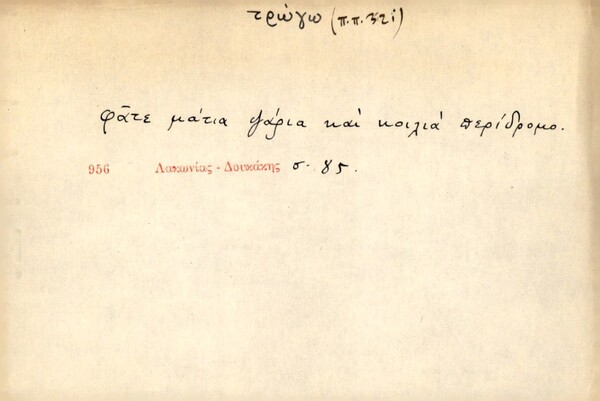 τρώγω (π.π. 32ί)
φᾶτε μάτια ψάρια καὶ κοιλιά περίδρομο.
956 Λακωνίας - Δουκάκης σ. 85.